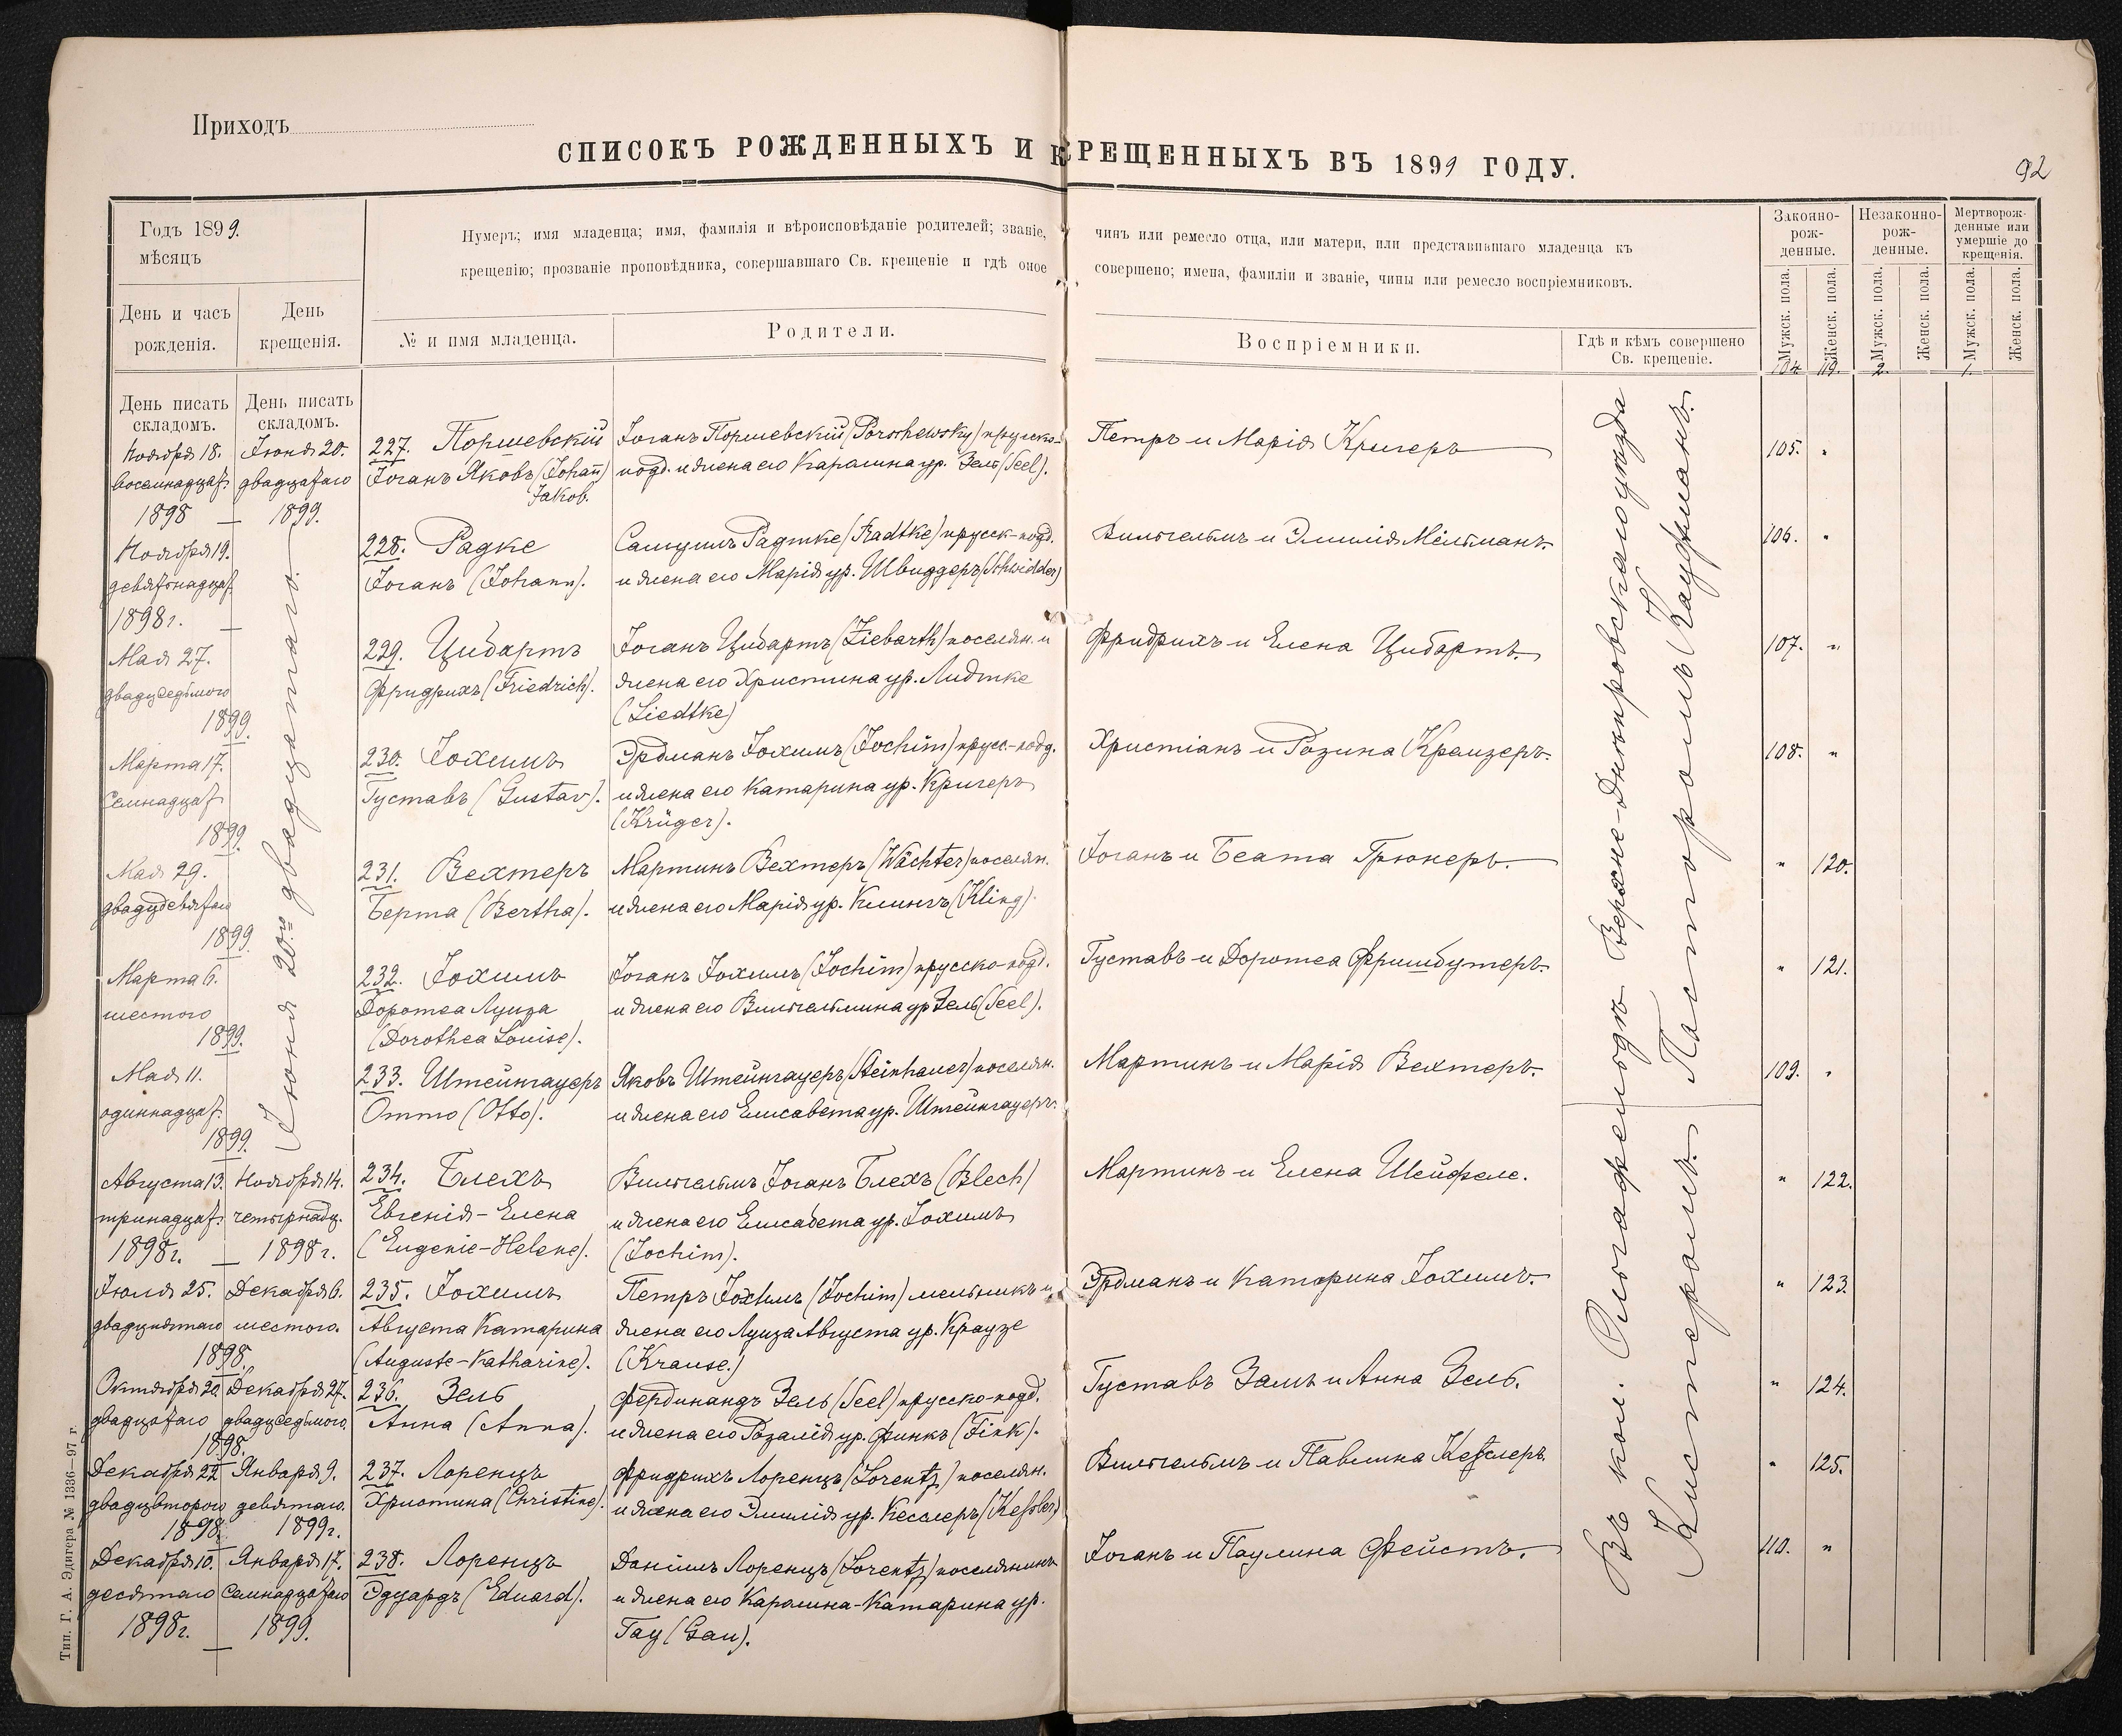 Приходъ
СПИСОКЪ РОЖДЕННЫХЪ И КРЕЩЕННЫХЪ ВЪ 1899 ГОДУ.
92
Годъ 1899.
мѣсяцъ
Нумеръ; имя младенца; имя, фамилія и вѣроисповѣданіе родителей; званіе, чинъ или ремесло отца, или матери, или представившаго младенца къ
крещенію; прозваніе проповѣдника, совершавшаго Св. крещеніе и гдѣ оное совершено; имена, фамиліи и званіе, чины или ремесло воспріемниковъ.
Законно-
рож-
денные.
Незаконно-
рож-
денные.
Мертворож-
денные или
умершіе до
крещенія.
День и часъ
рожденія.
День
крещенія.
№ и имя младенца.
Родители.
Воспріемники.
Гдѣ и кѣмъ совершено
Св. крещеніе.
Мужск. пола.
Женск. пола.
Мужск. пола.
Женск. пола.
Мужск. пола.
Женск. пола.
104. 119. 2. 1.
День писать
складомъ.
День писать
складомъ.
Ноября 18. Іюня 20. 227. Поршевскій Іоганъ Поршевскій (Porschewsky) прусско- Петръ и Марія Кригеръ 105. "
восемнадцат. двадцатаго Іоганъ Яковъ (Johan̄ подд. и жена его Каролина ур. Зель (Seel).
1898 — 1899. Jakob.
Ноября 19. 228. Радке Самуилъ Радтке (Radtke) прусск-подд. Вильгельмъ и Эмилія Мельманъ. 106. "
девятнадцат. Іоганъ (Johann). и жена его Марія ур. Швиддеръ (Schwidder)
1898 г.
Мая 27. 229. Цибартъ Іоганъ Цибартъ (Ziebarth) поселян. и Фридрихъ и Елена Цибартъ. 107. "
двадцседьмого Фридрихъ (Friedrich). жена его Христина ур. Лидтке
1899. (Liedtke)
Марта 17. 230. Іохимъ Эрдманъ Іохимъ (Jochim) прусс-подд. Христіанъ и Розина Краузеръ. 108. "
семнадцат. Густавъ (Gustav). и жена его Катарина ур. Кригеръ
1899. (Krüger).
Мая 29. 231. Вехтеръ Мартинъ Вехтеръ (Wächter) поселян. Іоганъ и Беата Грюнеръ. " 120.
двадцдевятаго Берта (Bertha). и жена его Марія ур. Клингъ (Kling).
1899.
Марта 6. 232. Іохимъ Іоганъ Іохимъ (Jochim) прусско-подд. Густавъ и Доротеа Фришбутеръ. " 121.
шестого Доротеа Луиза и жена его Вильгельмина ур Зель (Seel).
1899. (Dorothea Louise).
Мая 11. 233. Штейнгауеръ Яковъ Штейнгауеръ (Steinhauer) поселян. Мартинъ и Марія Вехтеръ. 109. "
одиннадцат. Отто (Otto). и жена его Елисавета ур. Штейнгауеръ.
1899.
Іюня 20го двадцатаго.
Августа 13. Ноября 14. 234. Блехъ Вильгельмъ Іоганъ Блехъ (Blech) Мартинъ и Елена Шейфеле. " 122.
тринадцат. четырнадц. Евгенія-Елена и жена его Елисавета ур. Іохимъ
1898 г. — 1898 г. (Eugenie-Helene). (Jochim).
Іюля 25. Декабря 6. 235. Іохимъ Петръ Іохимъ (Jochim) мельникъ и Эрдманъ и Катарина Іохимъ. " 123.
двадцпятаго шестого. Августа Катарина жена его Луиза Августа ур. Краузе
1898. (Auguste-Katharine). (Krause.)
Октября 20. Декабря 27. 236. Зель Фердинандъ Зель (Seel) прусско-подд. Густавъ Замъ и Анна Зель. " 124.
двадцатаго двадцседьмого. Анна (Anna). и жена его Розалія ур. Финкъ (Fink).
1898.
Декабря 22 Января 9. 237. Лоренцъ Фридрихъ Лоренцъ (Lorentz) поселян. Вильгельмъ и Павлина Кесслеръ " 125.
двадцвторого девятаго. Христина (Christine). и жена его Эмилія ур. Кесслеръ (Keßler)
1898. 1899 г.
Декабря 10. Января 17. 238. Лоренцъ Даніилъ Лоренцъ (Lorentz) поселянинъ Іоганъ и Паулина Фейстъ. 110. "
десятаго семнадцатаго Эдуардъ (Eduard). и жена его Каролина-Катарина ур.
1898 г. — 1899. Гау (Gau).
Въ кол. Ольгафельдѣ Верхне-Днѣпровскаго уѣзда
Кистеромъ. Пасторомъ Кауфманъ.
Тип. Г. А. Эдигера № 1336—97 г.